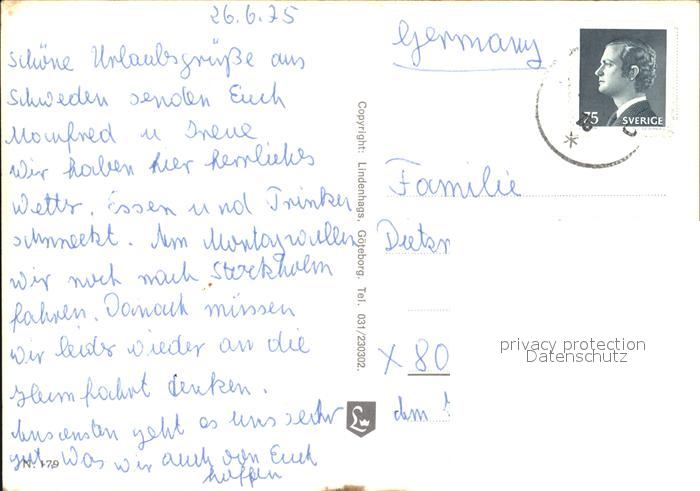 26.6.75
Schöne Urlaubsgrüße aus
Schweden senden Euch
Manfred u Irene
Wir haben hier herrliches
Wetter. Essen und Trinken
schmeckt. Am Montag wollen
wir noch nach Stockholm
fahren. Danach müssen
wir leider wieder an die
Heimfahrt denken.
Ansonsten geht es uns sehr
gut. Was wir auch von Euch
hoffen
N. 179
Copyright: Lindenhags, Göteborg. Tel. 031/230302.
L
Germany
75 SVERIGE
Familie
X 80
dem
privacy protection
Datenschutz